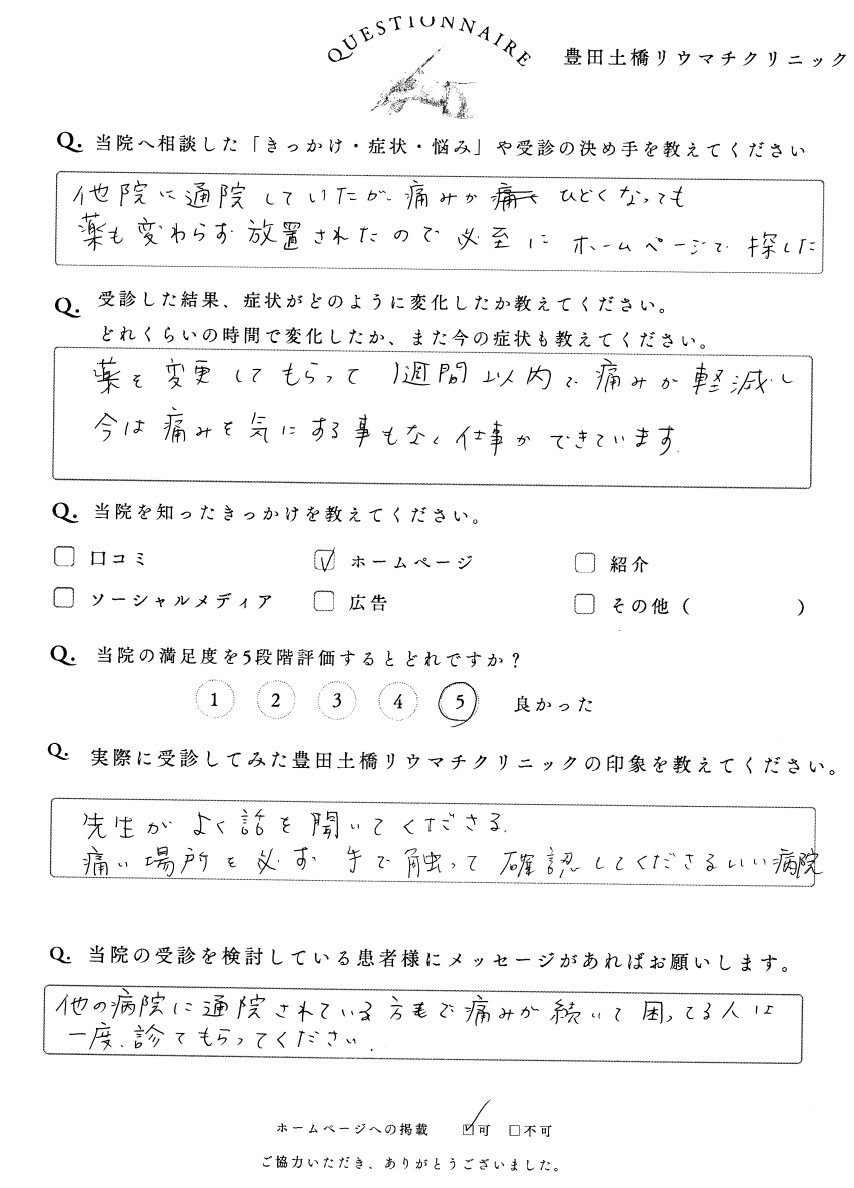 QUESTIONNAIRE
豊田土橋リウマチクリニック
Q. 当院へ相談した「きっかけ・症状・悩み」や受診の決め手を教えてください
他院に通院していたが、痛みが ひどくなっても
薬も変わらず放置されたので必至に ホームページで探した
Q. 受診した結果、症状がどのように変化したか教えてください。
どれくらいの時間で変化したか、また今の症状も教えてください。
薬を変更してもらって 1週間以内で痛みが軽減し
今は痛みを気にする事もなく仕事ができています.
Q. 当院を知ったきっかけを教えてください。
口コミ ホームページ 紹介
ソーシャルメディア 広告 その他 ( )
Q. 当院の満足度を5段階評価するとどれですか？
1 2 3 4 5 良かった
Q. 実際に受診してみた豊田土橋リウマチクリニックの印象を教えてください。
先生がよく話を聞いてくださる.
痛い場所を必ず手で触って確認してくださるいい病院
Q. 当院の受診を検討している患者様にメッセージがあればお願いします。
他の病院に通院されている方で痛みが続いて困ってる人は
一度、診てもらってください.
ホームページへの掲載 可 不可
ご協力いただき、ありがとうございました。